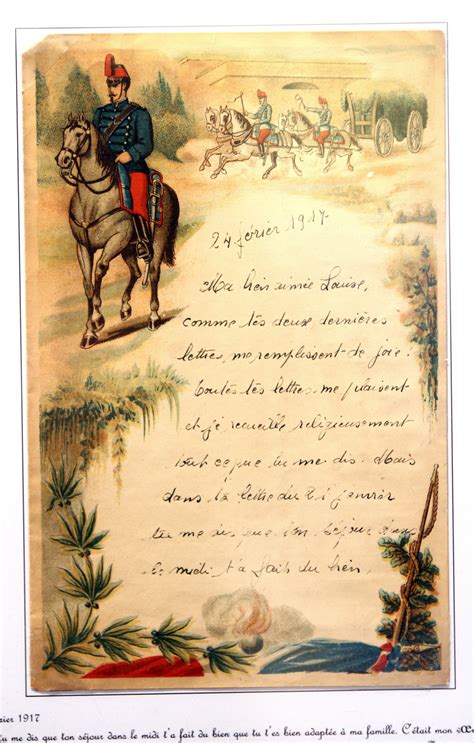 24 février 1917.
Ma bien aimée Louise,
comme tes deux dernières
lettres me remplissent de joie !
toutes tes lettres me plaisent
et je recueille religieusement
tout ce que tu me dis. Mais
dans la lettre du 21 janvier
tu me dis que ton séjour dans
le midi t'a fait du bien,
rier 1917
Tu me dis que ton séjour dans le midi t'a fait du bien que tu t'es bien adaptée à ma famille. C'était mon